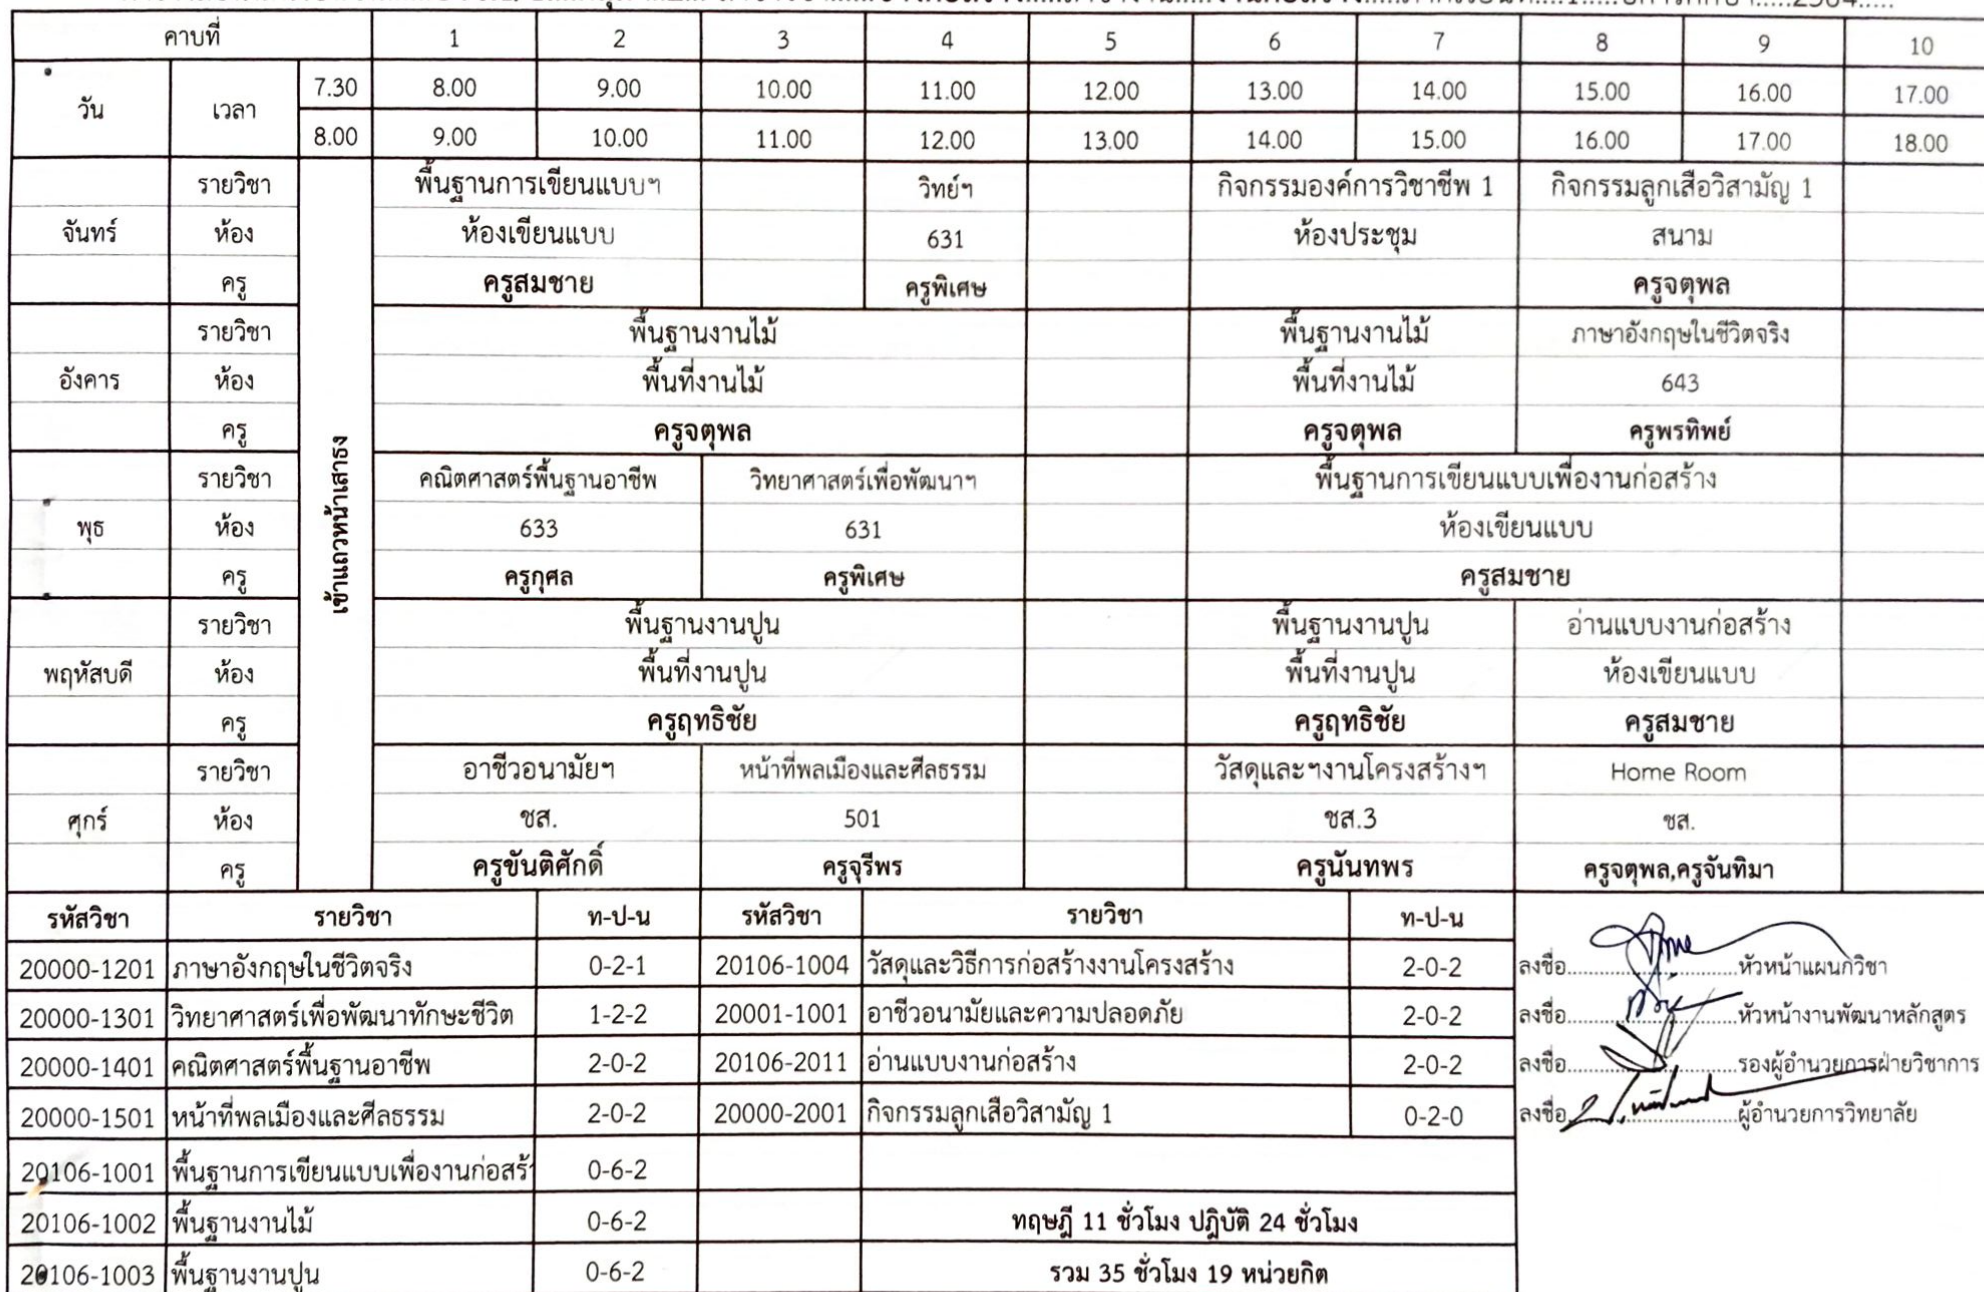 คาบที่ 1 2 3 4 5 6 7 8 9 10
วัน เวลา 7.30 8.00 9.00 10.00 11.00 12.00 13.00 14.00 15.00 16.00 17.00
8.00 9.00 10.00 11.00 12.00 13.00 14.00 15.00 16.00 17.00 18.00
เข้าแถวหน้าเสาธง
รายวิชา พื้นฐานการเขียนแบบฯ วิทย์ฯ กิจกรรมองค์การวิชาชีพ 1 กิจกรรมลูกเสือวิสามัญ 1
จันทร์ ห้อง ห้องเขียนแบบ 631 ห้องประชุม สนาม
ครู ครูสมชาย ครูพิเศษ ครูจตุพล
รายวิชา พื้นฐานงานไม้ พื้นฐานงานไม้ ภาษาอังกฤษในชีวิตจริง
อังคาร ห้อง พื้นที่งานไม้ พื้นที่งานไม้ 643
ครู ครูจตุพล ครูจตุพล ครูพรทิพย์
รายวิชา คณิตศาสตร์พื้นฐานอาชีพ วิทยาศาสตร์เพื่อพัฒนาฯ พื้นฐานการเขียนแบบเพื่องานก่อสร้าง
พุธ ห้อง 633 631 ห้องเขียนแบบ
ครู ครูกุศล ครูพิเศษ ครูสมชาย
รายวิชา พื้นฐานงานปูน พื้นฐานงานปูน อ่านแบบงานก่อสร้าง
พฤหัสบดี ห้อง พื้นที่งานปูน พื้นที่งานปูน ห้องเขียนแบบ
ครู ครูฤทธิชัย ครูฤทธิชัย ครูสมชาย
รายวิชา อาชีวอนามัยฯ หน้าที่พลเมืองและศีลธรรม วัสดุและฯงานโครงสร้างฯ Home Room
ศุกร์ ห้อง ชส. 501 ชส.3 ชส.
ครู ครูขันติศักดิ์ ครูจุรีพร ครูนันทพร ครูจตุพล,ครูจันทิมา
รหัสวิชา รายวิชา ท-ป-น รหัสวิชา รายวิชา ท-ป-น
20000-1201 ภาษาอังกฤษในชีวิตจริง 0-2-1 20106-1004 วัสดุและวิธีการก่อสร้างงานโครงสร้าง 2-0-2 ลงชื่อ..............................หัวหน้าแผนกวิชา
20000-1301 วิทยาศาสตร์เพื่อพัฒนาทักษะชีวิต 1-2-2 20001-1001 อาชีวอนามัยและความปลอดภัย 2-0-2 ลงชื่อ..............................หัวหน้างานพัฒนาหลักสูตร
20000-1401 คณิตศาสตร์พื้นฐานอาชีพ 2-0-2 20106-2011 อ่านแบบงานก่อสร้าง 2-0-2 ลงชื่อ..............................รองผู้อำนวยการฝ่ายวิชาการ
20000-1501 หน้าที่พลเมืองและศีลธรรม 2-0-2 20000-2001 กิจกรรมลูกเสือวิสามัญ 1 0-2-0 ลงชื่อ..............................ผู้อำนวยการวิทยาลัย
20106-1001 พื้นฐานการเขียนแบบเพื่องานก่อสร้า 0-6-2
20106-1002 พื้นฐานงานไม้ 0-6-2 ทฤษฎี 11 ชั่วโมง ปฎิบัติ 24 ชั่วโมง
20106-1003 พื้นฐานงานปูน 0-6-2 รวม 35 ชั่วโมง 19 หน่วยกิต